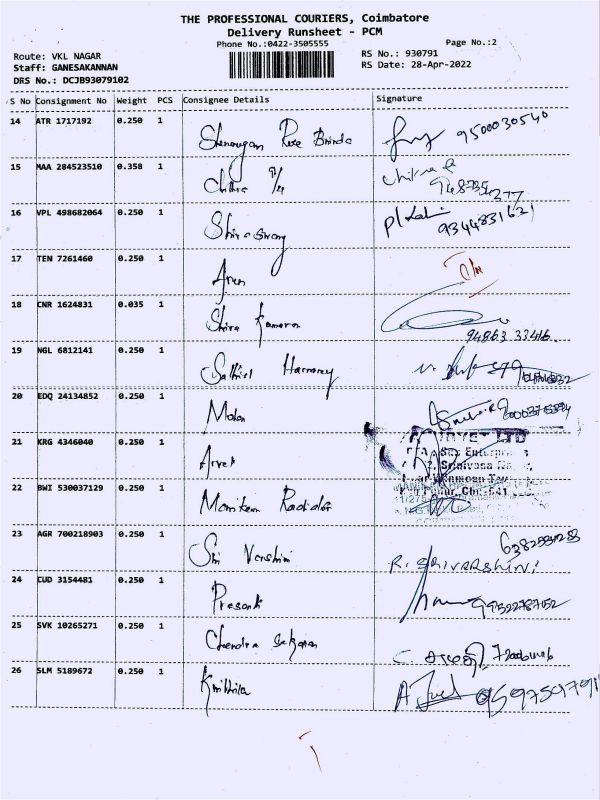 THE PROFESSIONAL COURIERS, Coimbatore
Delivery Runsheet - PCM
Phone No.:0422-3505555
Page No.:2
Route: VKL NAGAR
RS No.: 930791
Staff: GANESAKANNAN
RS Date: 28-Apr-2022
DRS No.: DCJB93079102
S No Consignment No Weight PCS Consignee Details Signature
14 ATR 1717192 0.250 1 9500030540
15 MAA 284523510 0.358 1 Chithra
16 VPL 498682064 0.250 1 9344831621
17 TEN 7261460 0.250 1 Arun
18 CNR 1624831 0.035 1 Shiva Kumaran
94863 33416
19 NGL 6812141 0.250 1 Sakthivel
20 EDQ 24134852 0.250 1 Mohan
21 KRG 4346040 0.250 1
22 BWI 530037129 0.250 1
23 AGR 700218903 0.250 1 Sri Varshini R. SRIVARSHINI
24 CUD 3154481 0.250 1 Prasanth
25 SVK 10265271 0.250 1 Chandra Sekaran
26 SLM 5189672 0.250 1 Krithika